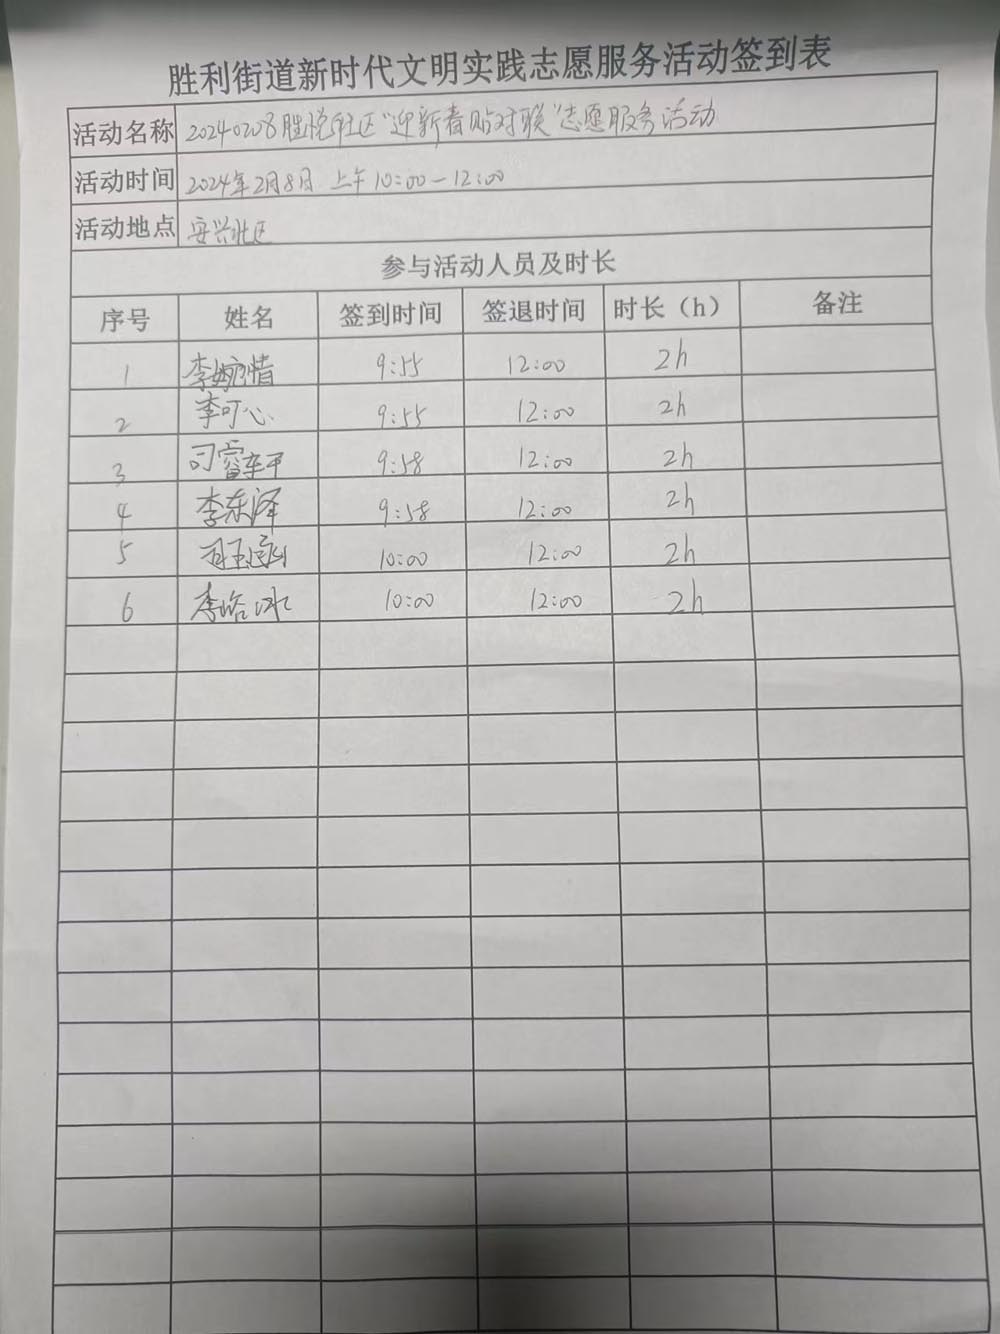 胜利街道新时代文明实践志愿服务活动签到表
活动名称 20240208胜悦社区“迎新春贴对联”志愿服务活动
活动时间 2024年2月8日 上午10:00-12:00
活动地点 安兴社区
参与活动人员及时长
序号 姓名 签到时间 签退时间 时长(h) 备注
1 李婉情 9:55 12:00 2h
2 李可心 9:55 12:00 2h
3 9:58 12:00 2h
4 李东泽 9:58 12:00 2h
5 10:00 12:00 2h
6 李皓冰 10:00 12:00 2h